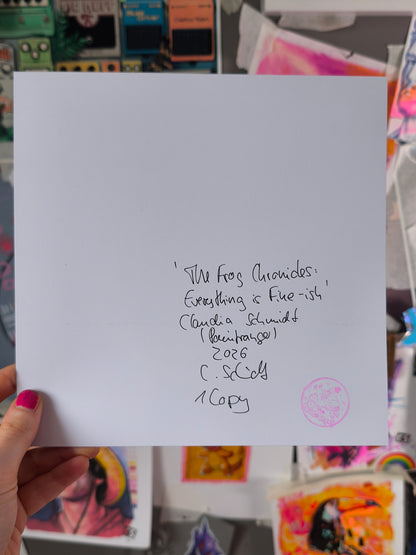 'The Frog Chronicles:
Everything is Fine-ish'
Claudia Schmidt
2026
1 Copy